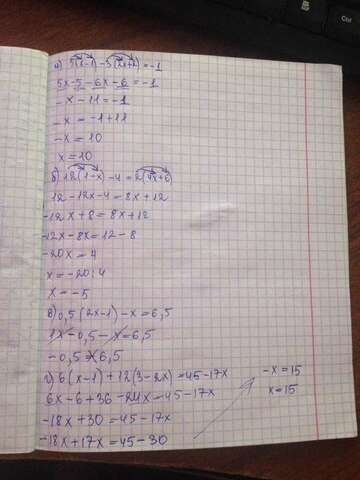 а) 5(x-1)-3(2x+2)=-1
5x-5-6x-6=-1
-x-11=-1
-x=-1+11
-x=10
x=10
б) 12(1-x)-4=2(4x+6)
12-12x-4=8x+12
-12x+8=8x+12
-12x-8x=12-8
-20x=4
x=-20:4
x=-5
в) 0,5(2x-1)-x=6,5
1x-0,5-x=6,5
-0,5≠6,5
г) 6(x-1)+12(3-2x)=45-17x
6x-6+36-24x=45-17x
-18x+30=45-17x
-18x+17x=45-30
-x=15
x=15